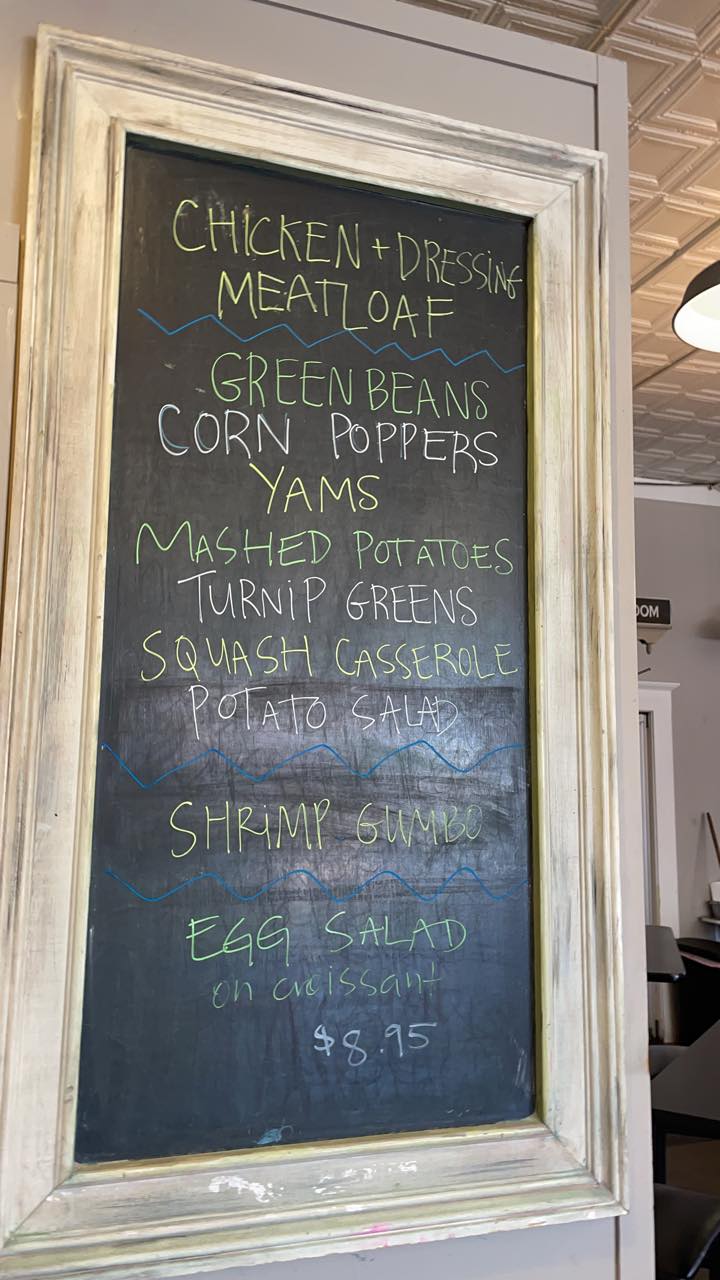 CHICKEN + DRESSING
MEATLOAF
GREEN BEANS
CORN POPPERS
YAMS
MASHED POTATOES
TURNIP GREENS
SQUASH CASSEROLE
POTATO SALAD
SHRIMP GUMBO
EGG SALAD
on croissant
$8.95
OOM